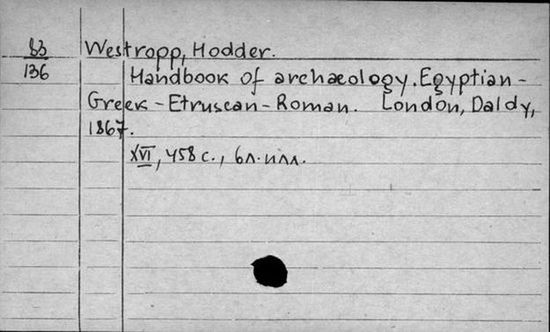 83 Westropp, Hodder.
136 Handbook of archaeology. Egyptian -
Greek - Etruscan - Roman. London, Daldy,
1867.
XVI, 458 с., 6 л. илл.